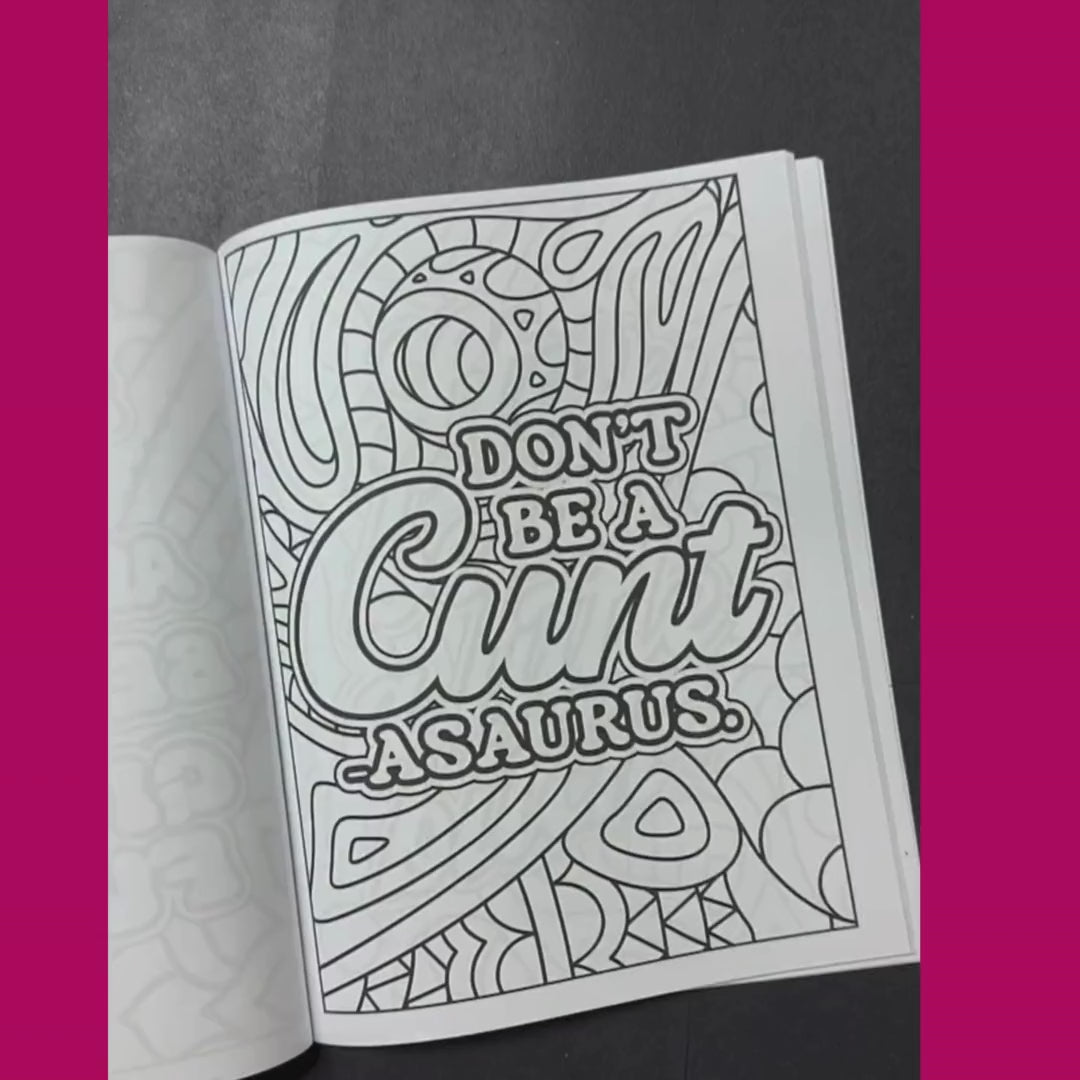 DON'T
BE A
Cunt
-ASAURUS.